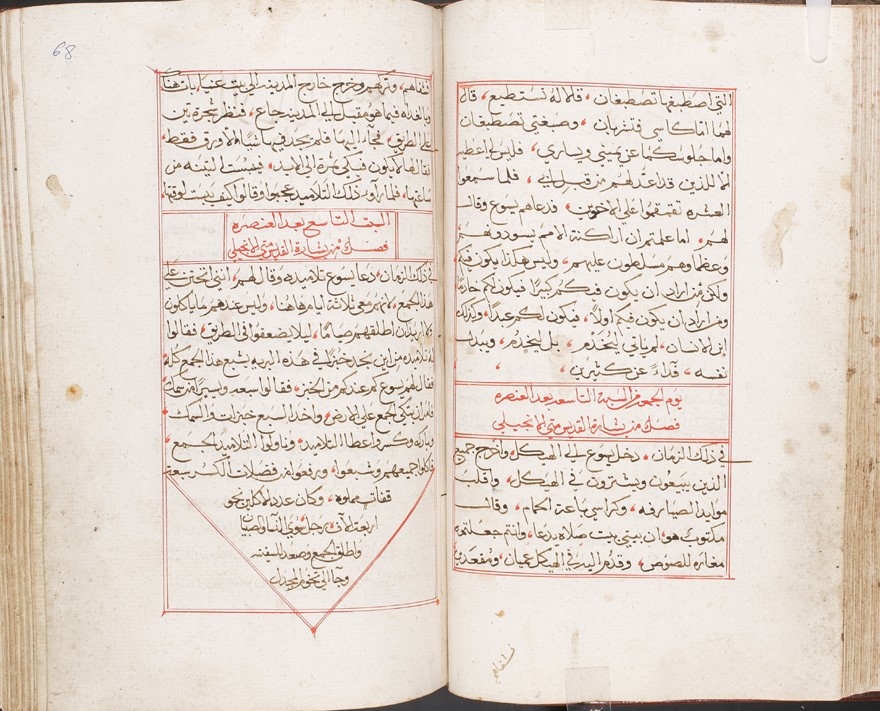 التي اصطبغها تصطبغان، قالا له نستطيع، قال
لهما اما كاسي فتشربان، وصبغتي تصطبغان
واما جلوسكما عن يميني ويساري، فليس لي اعطيه
الا للذين قد اعد لهم من قبل ابي، فلما سمعوا
العشره تقمقموا علي الاخوين، فدعاهم يسوع وقال
لهم، اما علمتم ان اراكنة الامم يسودونهم
وعظماوهم مسلطون عليهم، وليس هكذا يكون فيكم
ولكن من اراد ان يكون فيكم كبيرًا فيكون لكم خادمًا
ومن اراد ان يكون فيكم اولاً، فيكون لكم عبدًا، وكذلك
ابن الانسان، لم ياتي ليُخدَم، بل ليخدم، ويبذل
نفسه، فداءً عن كثيرين،
يوم الجمعه من السبة التاسعه بعد العنصره
فصل من بشارة القديس متي الانجيلي
في ذلك الزمان، دخل يسوع الي الهيكل، واخرج جميع
الذين يبيعون ويشترون في الهيكل، واقلب
موايد الصيارفه، وكراسي باعت الحمام، وقال
مكتوبٌ هو، ان بيتي بيت صلاه يدعا، وانتم جعلتموه
مغاره للصوص، وقدم اليه في الهيكل عميان، ومقعدين
فشفاهم
68
فشفاهم، وتركهم وخرج خارج المدينه الي بيت عنيا، بات هناك
وبالغداه فيما هو مقبل الي المدينه جاع، فنظر شجرة تين
علي الطريق، فجا اليها فلم يجد فيها شيًا الا ورق فقط،
فقال لها لا يكون فيكي ثمرة الي الابد، فيبست التينه من
ساعتها، فلما راو ذلك التلاميد عجبوا وقالوا كيف يبست لوقتها
السبت التاسع بعد العنصره
فصل من بشارة القديس متي الانجيلي
في ذلك الزمان، دعا يسوع تلاميده وقال لهم، انني اتحنن علي
هذا الجمع، لانهم معي ثلاثة ايام هاهنا، وليس عندهم ما ياكلون
ولا اريد ان اطلقهم صيامًا، ليلا يضعفوا في الطريق، فقالوا
له تلاميده من اين نجد خبزًا في هذه البريه يشبع هذا الجمع كله
فقال لهم يسوع كم عندكم من الخبز، فقالوا سبعه ويسيرًا من سمك
فامر ان يتكي الجمع علي الارض، واخد السبع خبزات والسمك
وبارك وكسر واعطا التلاميد، وناولوا التلاميد الجميع
فاكلوا جميعهم وشبعوا، ورفعوا من فضلات الكسر سبعة
قفاف مملوه، وكان عدد الاكلين نحو
اربعة الاف رجل، سوي النسا والصبيان
واطلق الجمع وصعد السفينه
وجا الي تخوم المجدل